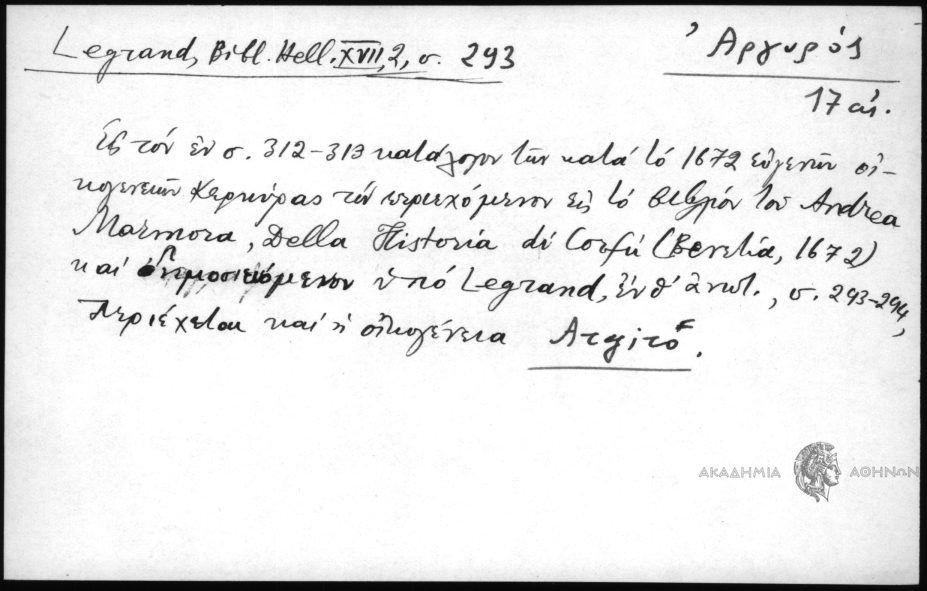 Legrand, Bibl. Hell. XVII, 2, σ. 293
Ἀργυρός
17 αἰ.
Εἰς τόν ἐν σ. 312-313 κατάλογον τῶν κατά τό 1672 εὐγενῶν οἰ-
κογενειῶν Κερκύρας τόν περιεχόμενον εἰς τό βιβλίον τοῦ Andrea
Marmora, Della Historia di Corfú (Βενετία, 1672)
καί δημοσιευόμενον ὑπό Legrand, ἔνθ' ἀνωτ., σ. 293-294,
περιέχεται καί ἡ οἰκογένεια Argirò.
ΑΚΑΔΗΜΙΑ ΑΘΗΝΩΝ